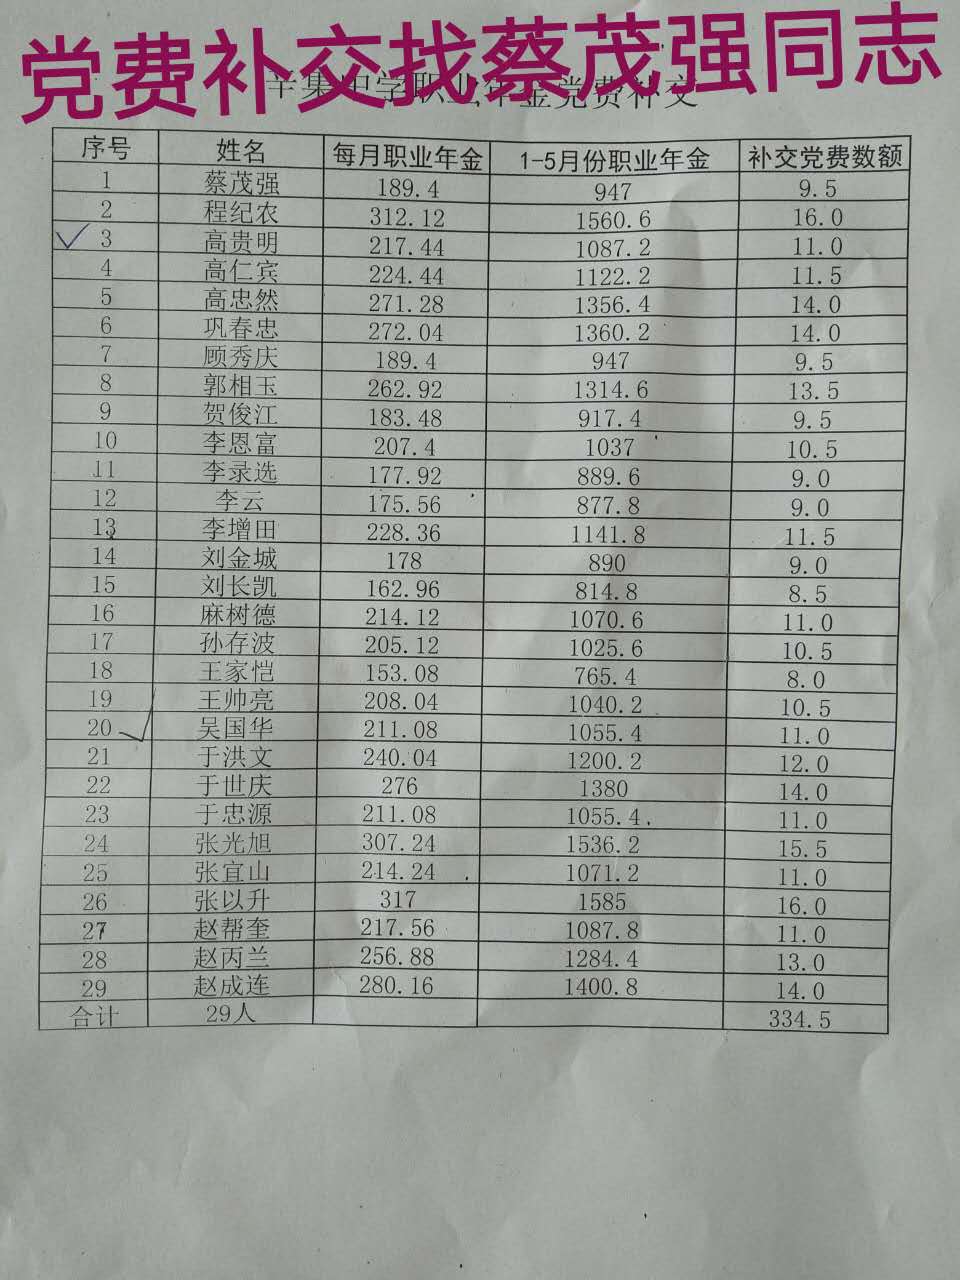 党费补交找蔡茂强同志
辛集中学职业年金党费补交
序号 姓名 每月职业年金 1-5月份职业年金 补交党费数额
1 蔡茂强 189.4 947 9.5
2 程纪农 312.12 1560.6 16.0
3 高贵明 217.44 1087.2 11.0
4 高仁宾 224.44 1122.2 11.5
5 高忠然 271.28 1356.4 14.0
6 巩春忠 272.04 1360.2 14.0
7 顾秀庆 189.4 947 9.5
8 郭相玉 262.92 1314.6 13.5
9 贺俊江 183.48 917.4 9.5
10 李恩富 207.4 1037 10.5
11 李录选 177.92 889.6 9.0
12 李云 175.56 877.8 9.0
13 李增田 228.36 1141.8 11.5
14 刘金城 178 890 9.0
15 刘长凯 162.96 814.8 8.5
16 麻树德 214.12 1070.6 11.0
17 孙存波 205.12 1025.6 10.5
18 王家恺 153.08 765.4 8.0
19 王帅亮 208.04 1040.2 10.5
20 吴国华 211.08 1055.4 11.0
21 于洪文 240.04 1200.2 12.0
22 于世庆 276 1380 14.0
23 于忠源 211.08 1055.4 11.0
24 张光旭 307.24 1536.2 15.5
25 张宜山 214.24 1071.2 11.0
26 张以升 317 1585 16.0
27 赵帮奎 217.56 1087.8 11.0
28 赵丙兰 256.88 1284.4 13.0
29 赵成连 280.16 1400.8 14.0
合计 29人 334.5